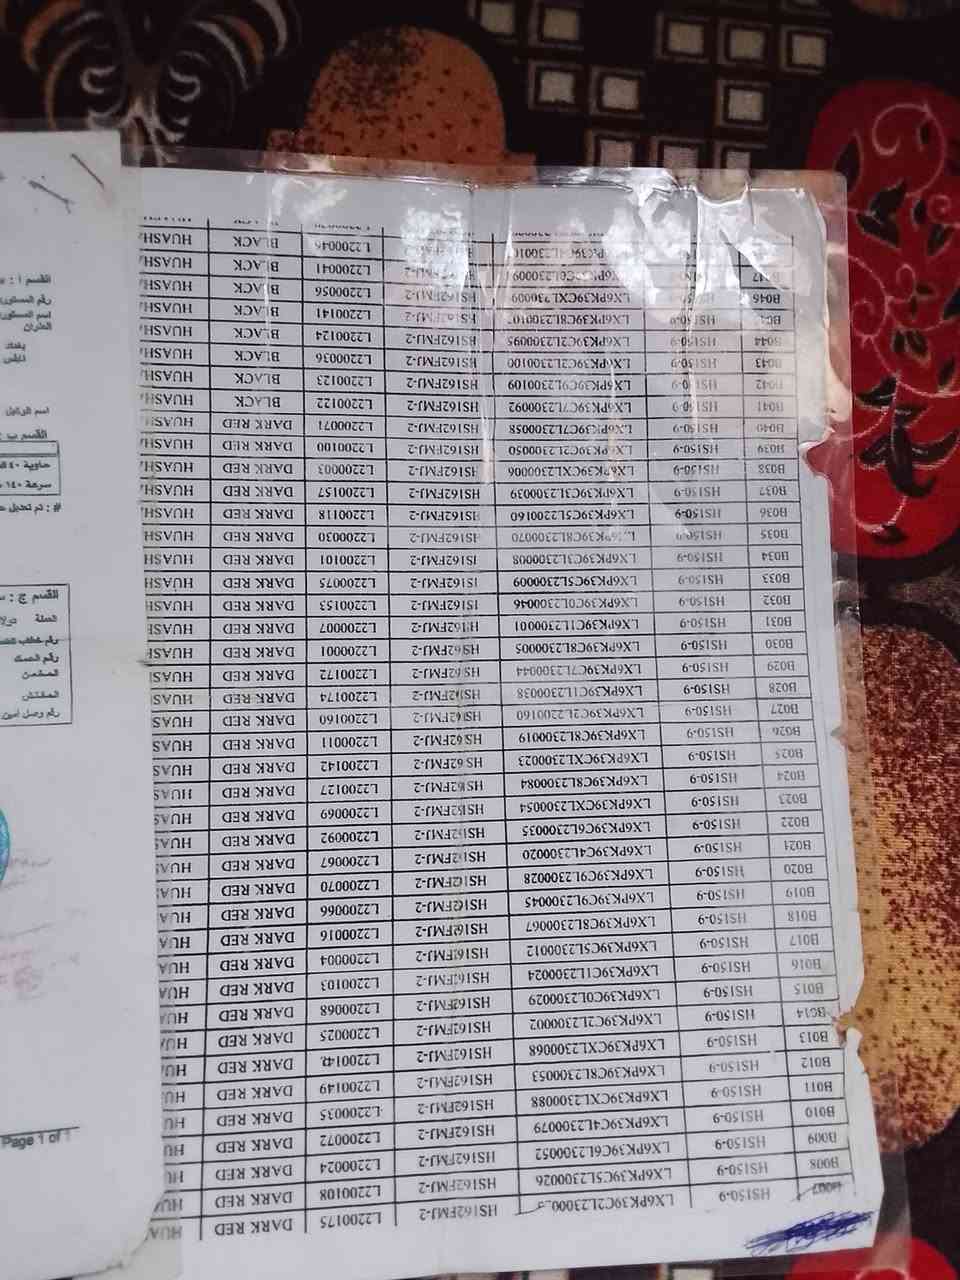 HS150-9 LX6PK39C2L23000 HS162FMJ-2 L2200175 DARK RED HUA
B008 HS150-9 LX6PK39C5L2300026 HS162FMJ-2 L2200108 DARK RED HU
B009 HS150-9 LX6PK39C6L2300052 HS162FMJ-2 L2200024 DARK RED HU
B010 HS150-9 LX6PK39C4L2300079 HS162FMJ-2 L2200072 DARK RED HU
B011 HS150-9 LX6PK39CXL2300088 HS162FMJ-2 L2200035 DARK RED HU
B012 HS150-9 LX6PK39C8L2300053 HS162FMJ-2 L2200149 DARK RED HU
B013 HS150-9 LX6PK39CXL2300068 HS162FMJ-2 DARK RED HUA
B014 HS150-9 LX6PK39C2L2300002 HS162FMJ-2 L2200025 DARK RED HUA
B015 HS150-9 LX6PK39C0L2300029 HS162FMJ-2 L2200068 DARK RED HUA
B016 HS150-9 LX6PK39C1L2300024 HS162FMJ-2 L2200103 DARK RED HUA
B017 HS150-9 LX6PK39C5L2300012 HS162FMJ-2 L2200004 DARK RED HUA
B018 HS150-9 LX6PK39C8L2300067 HS162FMJ-2 L2200016 DARK RED HUA
B019 HS150-9 LX6PK39C9L2300045 HS162FMJ-2 L2200066 DARK RED HUA
B020 HS150-9 LX6PK39C9L2300028 HS162FMJ-2 L2200070 DARK RED HUA
B021 HS150-9 LX6PK39C4L2300020 HS162FMJ-2 L2200067 DARK RED HUAS
B022 HS150-9 LX6PK39C6L2300035 HS162FMJ-2 L2200092 DARK RED HUAS
B023 HS150-9 LX6PK39CXL2300054 HS162FMJ-2 L2200069 DARK RED HUAS
B024 HS150-9 LX6PK39C8L2300084 HS162FMJ-2 L2200127 DARK RED HUAS
B025 HS150-9 LX6PK39CXL2300023 HS162FMJ-2 L2200142 DARK RED HUAS
B026 HS150-9 LX6PK39C8L2300019 HS162FMJ-2 L2200011 DARK RED HUAS
B027 HS150-9 LX6PK39C2L2200160 HS162FMJ-2 L2200160 DARK RED HUAS
B028 HS150-9 LX6PK39C1L2300038 HS162FMJ-2 L2200174 DARK RED HUASH
B029 HS150-9 LX6PK39C7L2300044 HS162FMJ-2 L2200172 DARK RED HUASH
B030 HS150-9 LX6PK39C8L2300005 HS162FMJ-2 L2200001 DARK RED HUASH
B031 HS150-9 LX6PK39C1L2300001 HS162FMJ-2 L2200007 DARK RED HUASH
B032 HS150-9 LX6PK39C0L2300046 HS162FMJ-2 L2200153 DARK RED HUASH
B033 HS150-9 LX6PK39C5L2300009 HS162FMJ-2 L2200075 DARK RED HUASH
B034 HS150-9 LX6PK39C3L2300008 HS162FMJ-2 L2200101 DARK RED HUASH
B035 HS150-9 HS162FMJ-2 L2200030 DARK RED HUASH
B036 HS150-9 LX6PK39C5L2200160 HS162FMJ-2 L2200118 DARK RED HUASH
B037 HS150-9 LX6PK39C3L2300039 HS162FMJ-2 L2200157 DARK RED HUASH
B038 HS150-9 LX6PK39CXL2300006 HS162FMJ-2 L2200003 DARK RED HUASH
B039 HS150-9 LX6PK39C2L2300050 HS162FMJ-2 L2200100 DARK RED HUASH
B040 HS150-9 LX6PK39C7L2300058 HS162FMJ-2 L2200071 DARK RED HUASH
B041 HS150-9 LX6PK39C7L2300092 HS162FMJ-2 L2200122 BLACK HUASH
B042 HS150-9 LX6PK39C9L2300109 HS162FMJ-2 L2200123 BLACK HUASH
B043 HS150-9 LX6PK39C2L2300100 HS162FMJ-2 L2200036 BLACK HUASH
B044 HS150-9 LX6PK39C9L2300095 HS162FMJ-2 L2200124 BLACK HUASH
B045 HS150-9 HS162FMJ-2 L2200141 BLACK HUASH
B046 HS150-9 HS162FMJ-2 L2200056 BLACK HUASH
L2200041 BLACK HUASH
L2200046 BLACK HUASH
القسم ا :
اسم الوكيل
القسم ب :
حاوية ٤٠
سرعة ١٤٠
# : تم تعديل
القسم ج :
العملة دولار
المفتش
رقم وصل امين
Page 1 of 1